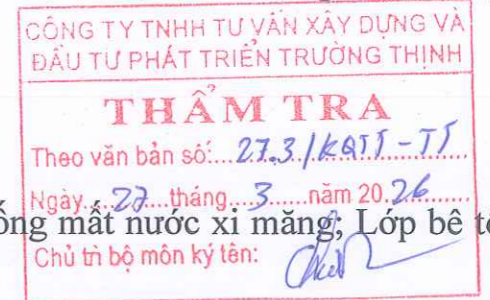 CÔNG TY TNHH TƯ VẤN XÂY DỰNG VÀ
ĐẦU TƯ PHÁT TRIỂN TRƯỜNG THỊNH
THẨM TRA
Theo văn bản số:...27.3./KQTT-TT
Ngày....27....tháng....3......năm 20.26
ống mất nước xi măng; Lớp bê t
Chủ trì bộ môn ký tên: